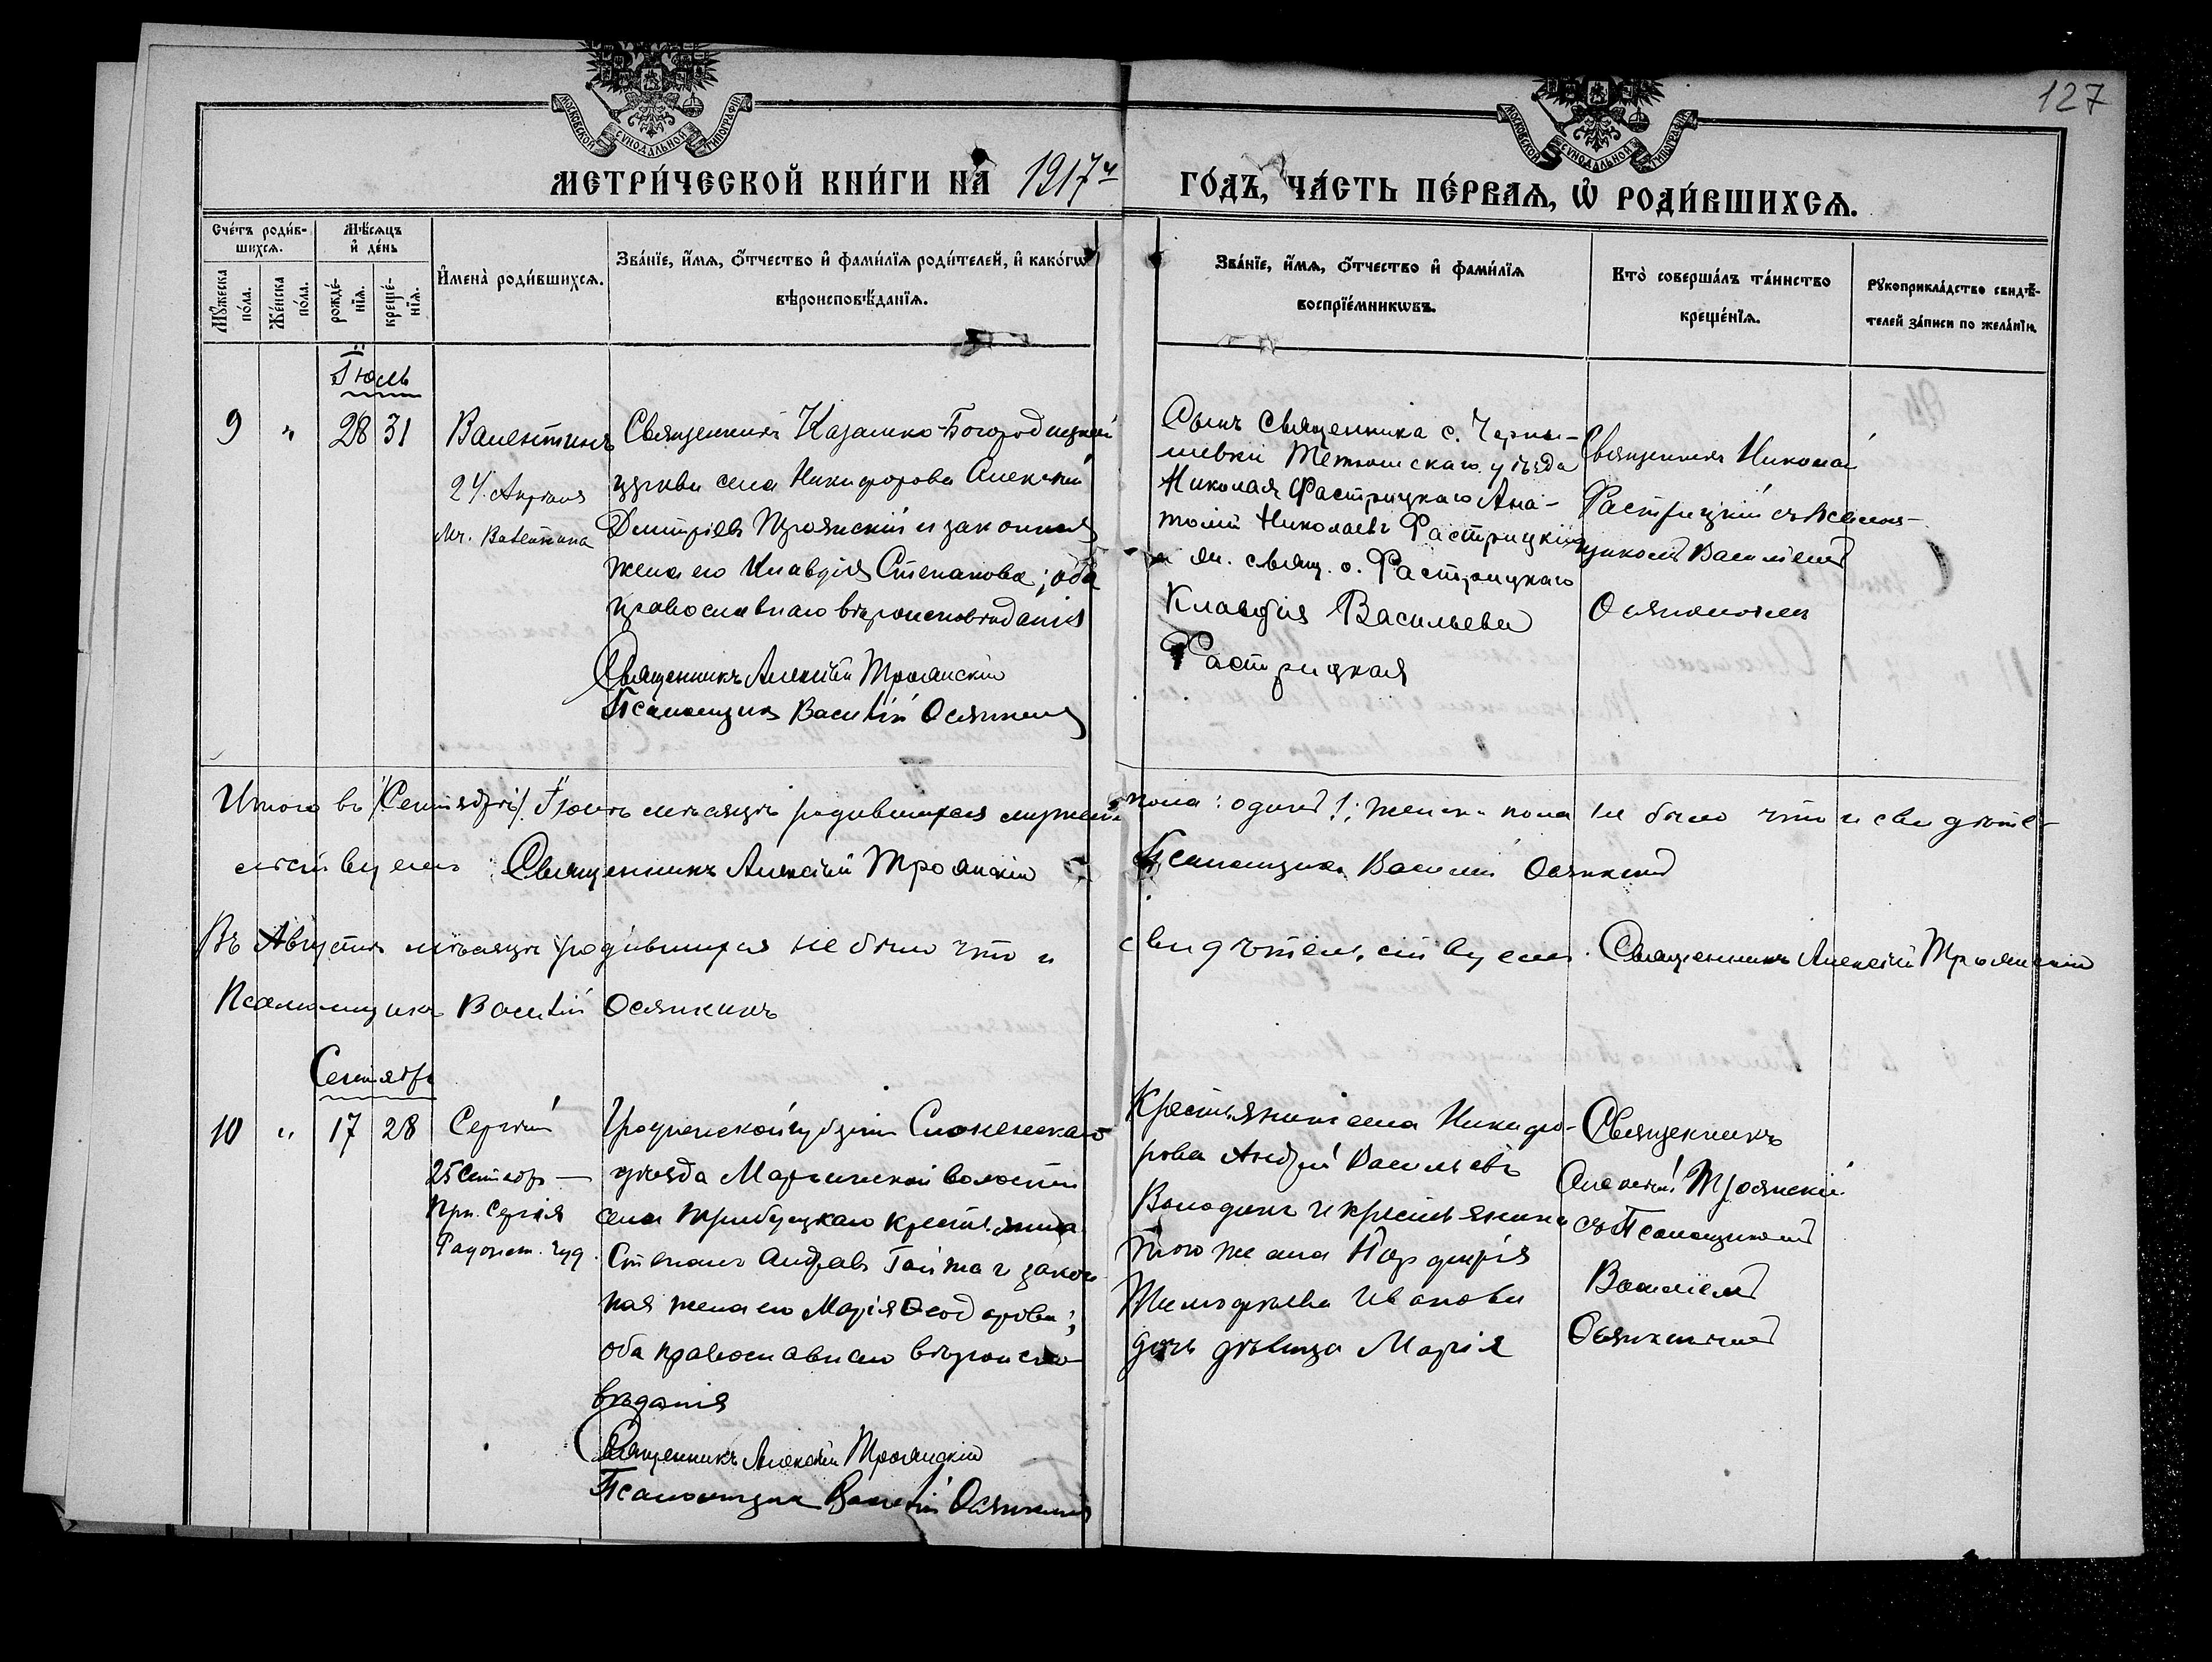 127
МОСКОВСКОЙ СѴНОДАЛЬНОЙ ТИПОГРАФІИ
МОСКОВСКОЙ СѴНОДАЛЬНОЙ ТИПОГРАФІИ
МЕТРИ́ЧЕСКОЙ КНИ́ГИ НА 1917й ГО́ДЪ, ЧА́СТЬ ПЕ́РВАѦ, Ѡ҆ РОДИ́ВШИХСѦ.
Сче́тъ роди́в-
шихсѧ.
Мꙋ́жеска по́ла.
Же́нска по́ла.
Мѣ́сѧцъ
и҆ де́нь
рожде́-
нїѧ.
креще́-
нїѧ.
И҆мена̀ роди́вшихсѧ.
Зва́нїе, и҆́мѧ, ѻ҆́тчество и҆ фами́лїѧ роди́телей, и҆ како́гѡ
вѣроисповѣ́данїѧ.
Зва́нїе, и҆́мѧ, ѻ҆́тчество и҆ фами́лїѧ
воспрїе́мникѡвъ.
Кто̀ соверша́лъ та́инство
креще́нїѧ.
Рꙋкоприкла́дство свидѣ́-
телей за́писи по жела́нїю.
Іюль
9 " 28 31
Валентинъ
24 Апрѣля
Мч. Валентина
Священникъ Казанско-Богородицкой
церкви села Никифорова Алексѣй
Дмитріевъ Троянскій и законная
жена его Клавдія Степанова; оба
православнаго вѣроисповѣданія
Священникъ Алексѣй Троянскій
Псаломщикъ Василій Осянкинъ
Сынъ священника с. Черны-
шевки Тетюшскаго уѣзда
Николая Растрицкаго Ана-
толій Николаевъ Растрицкій
и свящ. о. Растрицкаго
Клавдія Васильева
Растрицкая
Священникъ Николай
Растрицкій съ псалом-
щикомъ Василіемъ
Осянкинымъ
Итого въ /Сентябрѣ/ Іюлѣ мѣсяцѣ родившихся мужеска пола: одинъ 1; женска пола не было что и свидѣтель-
ствуемъ: Священникъ Алексѣй Троянскій Псаломщикъ Василій Осянкинъ
Въ Августѣ мѣсяцѣ родившихся не было что и свидѣтельствуемъ. Священникъ Алексѣй Троянскій
Псаломщикъ Василій Осянкинъ
Сентябрь
10 " 17 28
Сергѣй
25 Сентябр —
Прп. Сергія
Радонеж. чуд.
Гродненской губерніи Слонимскаго
уѣзда Марьинской волости
села крестьянинъ
Степанъ и закон-
ная жена его Марія Ѳеодорова;
оба православнаго вѣроиспо-
вѣданія
Священникъ Алексѣй Троянскій
Псаломщикъ Василій Осянкинъ
Крестьянинъ села Никифо-
рова Андрей Васильевъ
Володинъ и крестьянина
того же села Порфирія
Тимофѣева Иванова
дочь дѣвица Марія
Священникъ
Алексѣй Троянскій
съ Псаломщикомъ
Василіемъ
Осянкинымъ